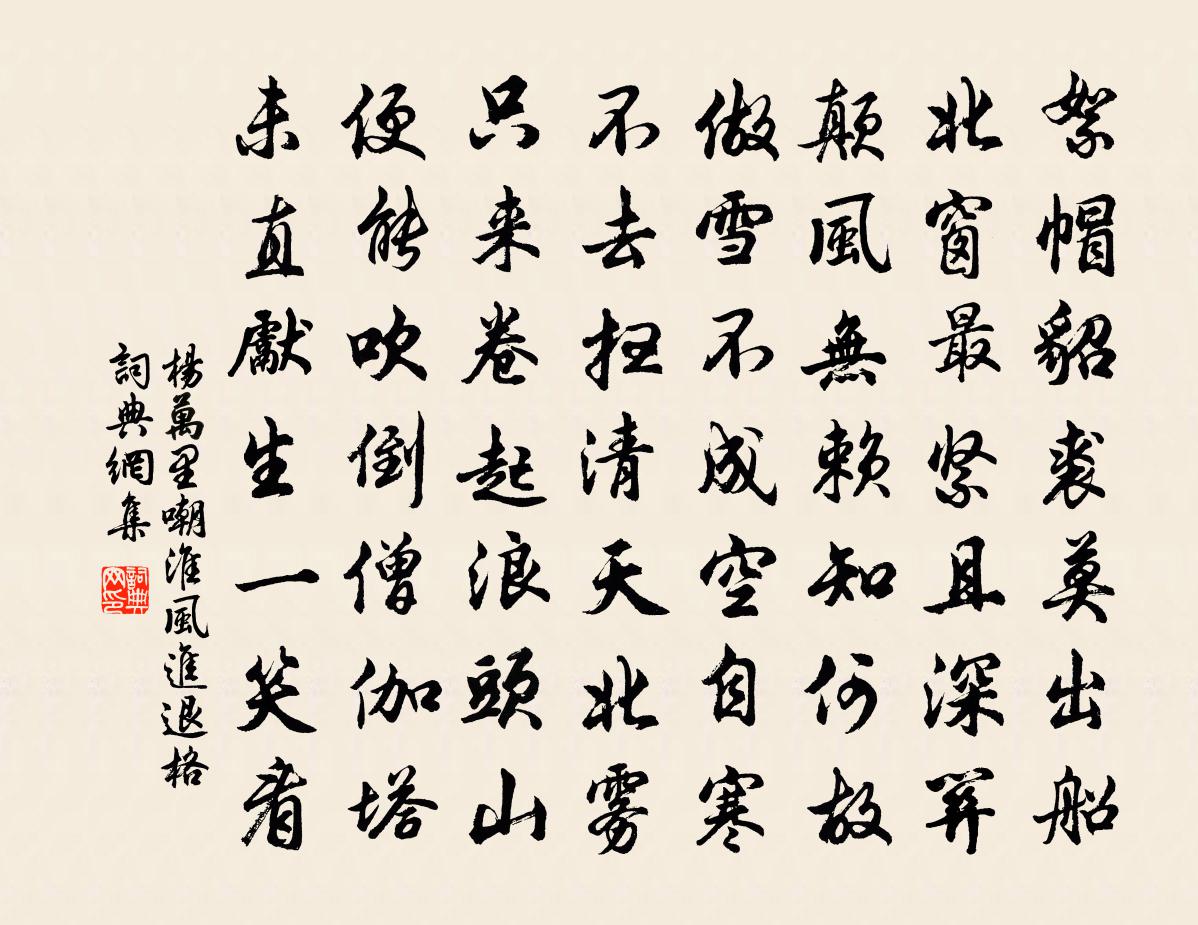 絮帽貂裘莫出船
北窗最緊且深關
顛風無賴知何故
做雪不成空自寒
不去掃清天北雾
只来卷起浪頭山
便能吹倒僧伽塔
未直獻生一笑看
楊萬里嘲淮風進退格
詞典網集
詞典网印